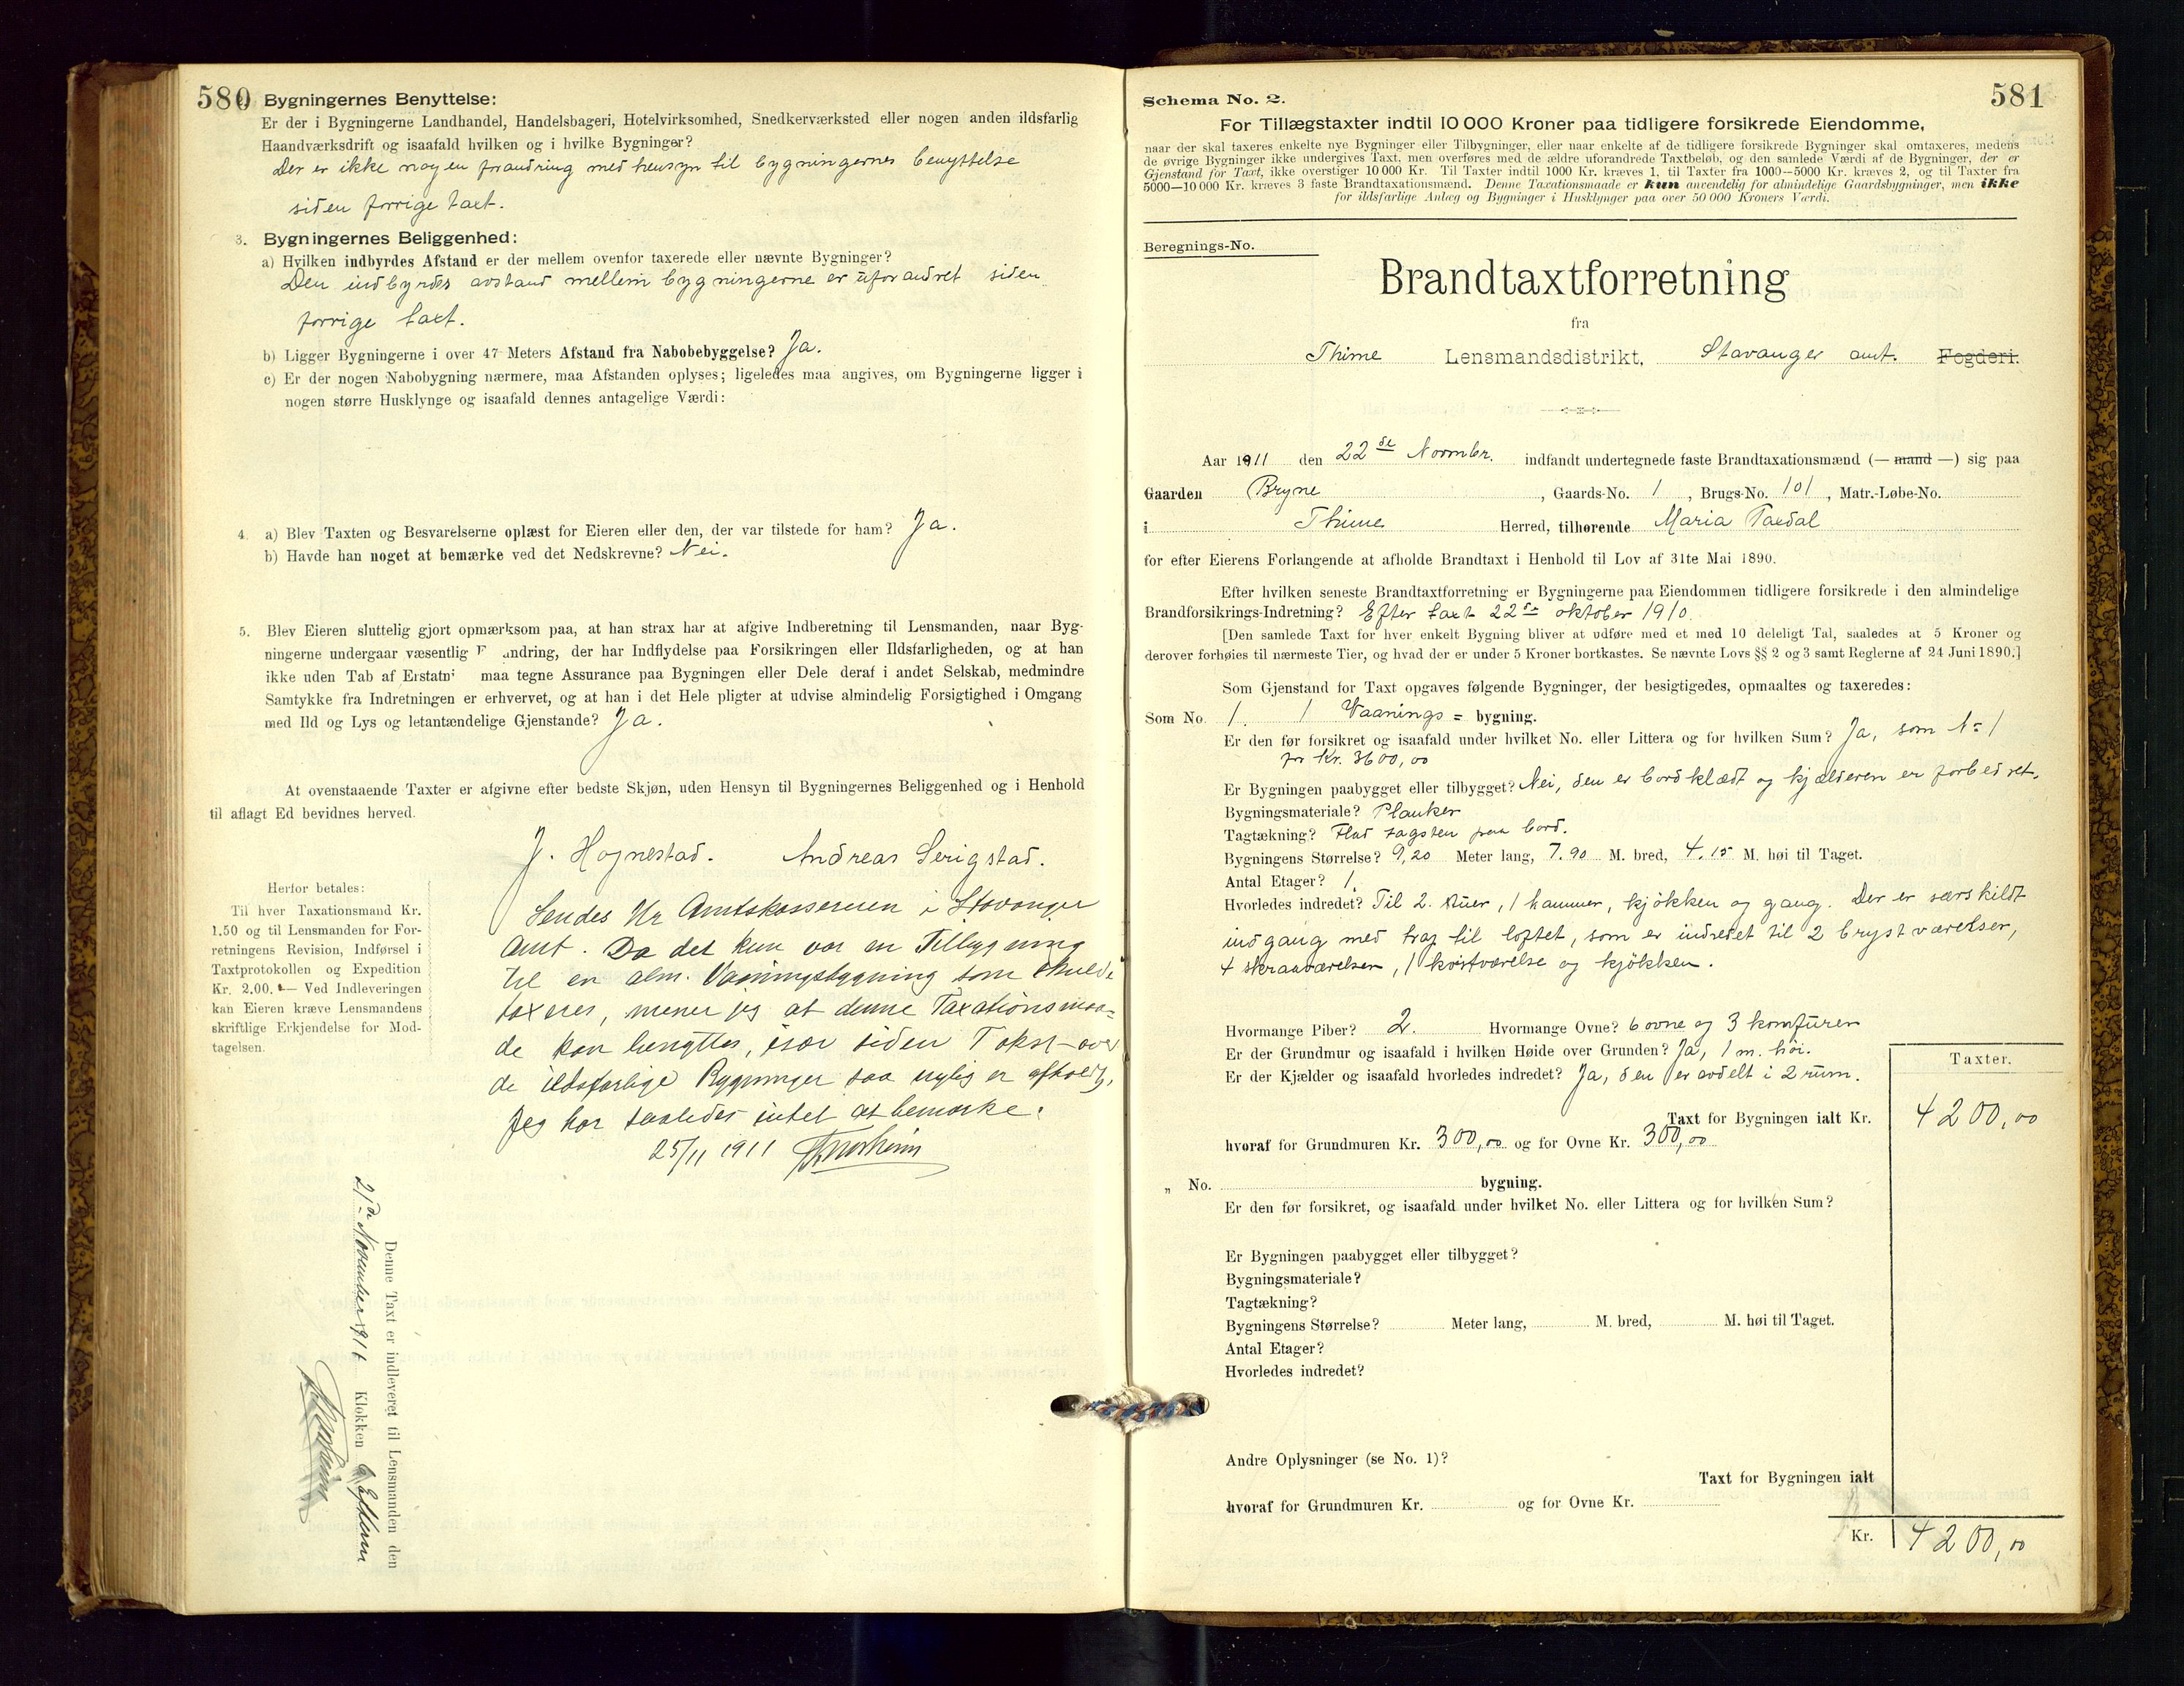 580
2. Bygningernes Benyttelse:
Er der i Bygningerne Landhandel, Handelsbageri, Hotelvirksomhed, Snedkerværksted eller nogen anden ildsfarlig
Haandværksdrift og isaafald hvilken og i hvilke Bygninger?
Der er ikke nogen forandring med hensyn til bygningernes benyttelse
siden forrige taxt.
3. Bygningernes Beliggenhed:
a) Hvilken indbyrdes Afstand er der mellem ovenfor taxerede eller nævnte Bygninger?
Den indbyrdes avstand mellem bygningerne er uforandret siden
forrige taxt.
b) Ligger Bygningerne i over 47 Meters Afstand fra Nabobebyggelse? Ja.
c) Er der nogen Nabobygning nærmere, maa Afstanden oplyses; ligeledes maa angives, om Bygningerne ligger i
nogen større Husklynge og isaafald dennes antagelige Værdi:
4. a) Blev Taxten og Besvarelserne oplæst for Eieren eller den, der var tilstede for ham? Ja.
b) Havde han noget at bemærke ved det Nedskrevne? Nei.
5. Blev Eieren sluttelig gjort opmærksom paa, at han strax har at afgive Indberetning til Lensmanden, naar Byg-
ningerne undergaar væsentlig F andring, der har Indflydelse paa Forsikringen eller Ildsfarligheden, og at han
ikke uden Tab af Erstatn maa tegne Assurance paa Bygningen eller Dele deraf i andet Selskab, medmindre
Samtykke fra Indretningen er erhvervet, og at han i det Hele pligter at udvise almindelig Forsigtighed i Omgang
med Ild og Lys og letantændelige Gjenstande? Ja.
At ovenstaaende Taxter er afgivne efter bedste Skjøn, uden Hensyn til Bygningernes Beliggenhed og i Henhold
til aflagt Ed bevidnes herved.
J. Hognestad. Andreas Serigstad.
Herfor betales:
Til hver Taxationsmand Kr.
1.50 og til Lensmanden for For-
retningens Revision, Indførsel i
Taxtprotokollen og Expedition
Kr. 2.00. — Ved Indleveringen
kan Eieren kræve Lensmandens
skriftlige Erkjendelse for Mod-
tagelsen.
Sendes Hr Amtskassereren i Stavanger
Amt. Da det kun var en Tilbygning
til en alm. Vaaningsbygning som skulde
taxeres, mener jeg at denne Taxationsmaa-
de kan benyttes, især siden Takst over
de ildsfarlige Bygninger saa nylig er afholdt,
Jeg har saaledes intet at bemærke.
25/11 1911
Denne Taxt er indleveret til Lensmanden den
21de November 1911 Klokken 6 Efterm
581
Schema No. 2.
For Tillægstaxter indtil 10 000 Kroner paa tidligere forsikrede Eiendomme,
naar der skal taxeres enkelte nye Bygninger eller Tilbygninger, eller naar enkelte af de tidligere forsikrede Bygninger skal omtaxeres, medens
de øvrige Bygninger ikke undergives Taxt, men overføres med de ældre uforandrede Taxtbeløb, og den samlede Værdi af de Bygninger, der er
Gjenstand for Taxt, ikke overstiger 10 000 Kr. Til Taxter indtil 1000 Kr. kræves 1, til Taxter fra 1000—5000 Kr. kræves 2, og til Taxter fra
5000—10 000 Kr. kræves 3 faste Brandtaxationsmænd. Denne Taxationsmaade er kun anvendelig for almindelige Gaardsbygninger, men ikke
for ildsfarlige Anlæg og Bygninger i Husklynger paa over 50 000 Kroners Værdi.
Beregnings-No.
Brandtaxtforretning
fra
Thime Lensmandsdistrikt, Stavanger amt. Fogderi.
Aar 1911 den 22de Novmbr. indfandt undertegnede faste Brandtaxationsmænd (— mand —) sig paa
Gaarden Bryne, Gaards-No. 1, Brugs-No. 101, Matr.-Løbe-No.
i Thime Herred, tilhørende Maria Taxdal
for efter Eierens Forlangende at afholde Brandtaxt i Henhold til Lov af 31te Mai 1890.
Efter hvilken seneste Brandtaxtforretning er Bygningerne paa Eiendommen tidligere forsikrede i den almindelige
Brandforsikrings-Indretning? Efter taxt 22de oktober 1910.
[Den samlede Taxt for hver enkelt Bygning bliver at udføre med et med 10 deleligt Tal, saaledes at 5 Kroner og
derover forhøies til nærmeste Tier, og hvad der er under 5 Kroner bortkastes. Se nævnte Lovs §§ 2 og 3 samt Reglerne af 24 Juni 1890.]
Som Gjenstand for Taxt opgaves følgende Bygninger, der besigtigedes, opmaaltes og taxeredes:
Som No. 1. 1 Vaanings = bygning.
Er den før forsikret og isaafald under hvilket No. eller Littera og for hvilken Sum? Ja, som No 1
for Kr. 3600,00
Er Bygningen paabygget eller tilbygget? Nei, den er bordklædt og kjælderen er forbedret.
Bygningsmateriale? Planker
Tagtækning? Flad tagsten paa bord.
Bygningens Størrelse? 9,20 Meter lang, 7.90 M. bred, 4.15 M. høi til Taget.
Antal Etager? 1.
Hvorledes indredet? Til 2. stuer, 1 kammer, kjøkken og gang. Der er særskildt
indgang med trap til loftet, som er indredet til 2 brystværelser,
4 skraaværelser, 1 kvistværelse og kjøkken.
Hvormange Piber? 2. Hvormange Ovne? 6 ovne og 3 komfurer
Er der Grundmur og isaafald i hvilken Høide over Grunden? Ja, 1 m. høi.
Er der Kjælder og isaafald hvorledes indredet? Ja, den er avdelt i 2 rum.
Taxter.
Taxt for Bygningen ialt Kr. 4200,00
hvoraf for Grundmuren Kr. 300,00 og for Ovne Kr. 300,00
„ No. bygning.
Er den før forsikret, og isaafald under hvilket No. eller Littera og for hvilken Sum?
Er Bygningen paabygget eller tilbygget?
Bygningsmateriale?
Tagtækning?
Bygningens Størrelse? Meter lang, M. bred, M. høi til Taget.
Antal Etager?
Hvorledes indredet?
Andre Oplysninger (se No. 1)?
Taxt for Bygningen ialt
hvoraf for Grundmuren Kr. og for Ovne Kr.
Kr. 4200,00